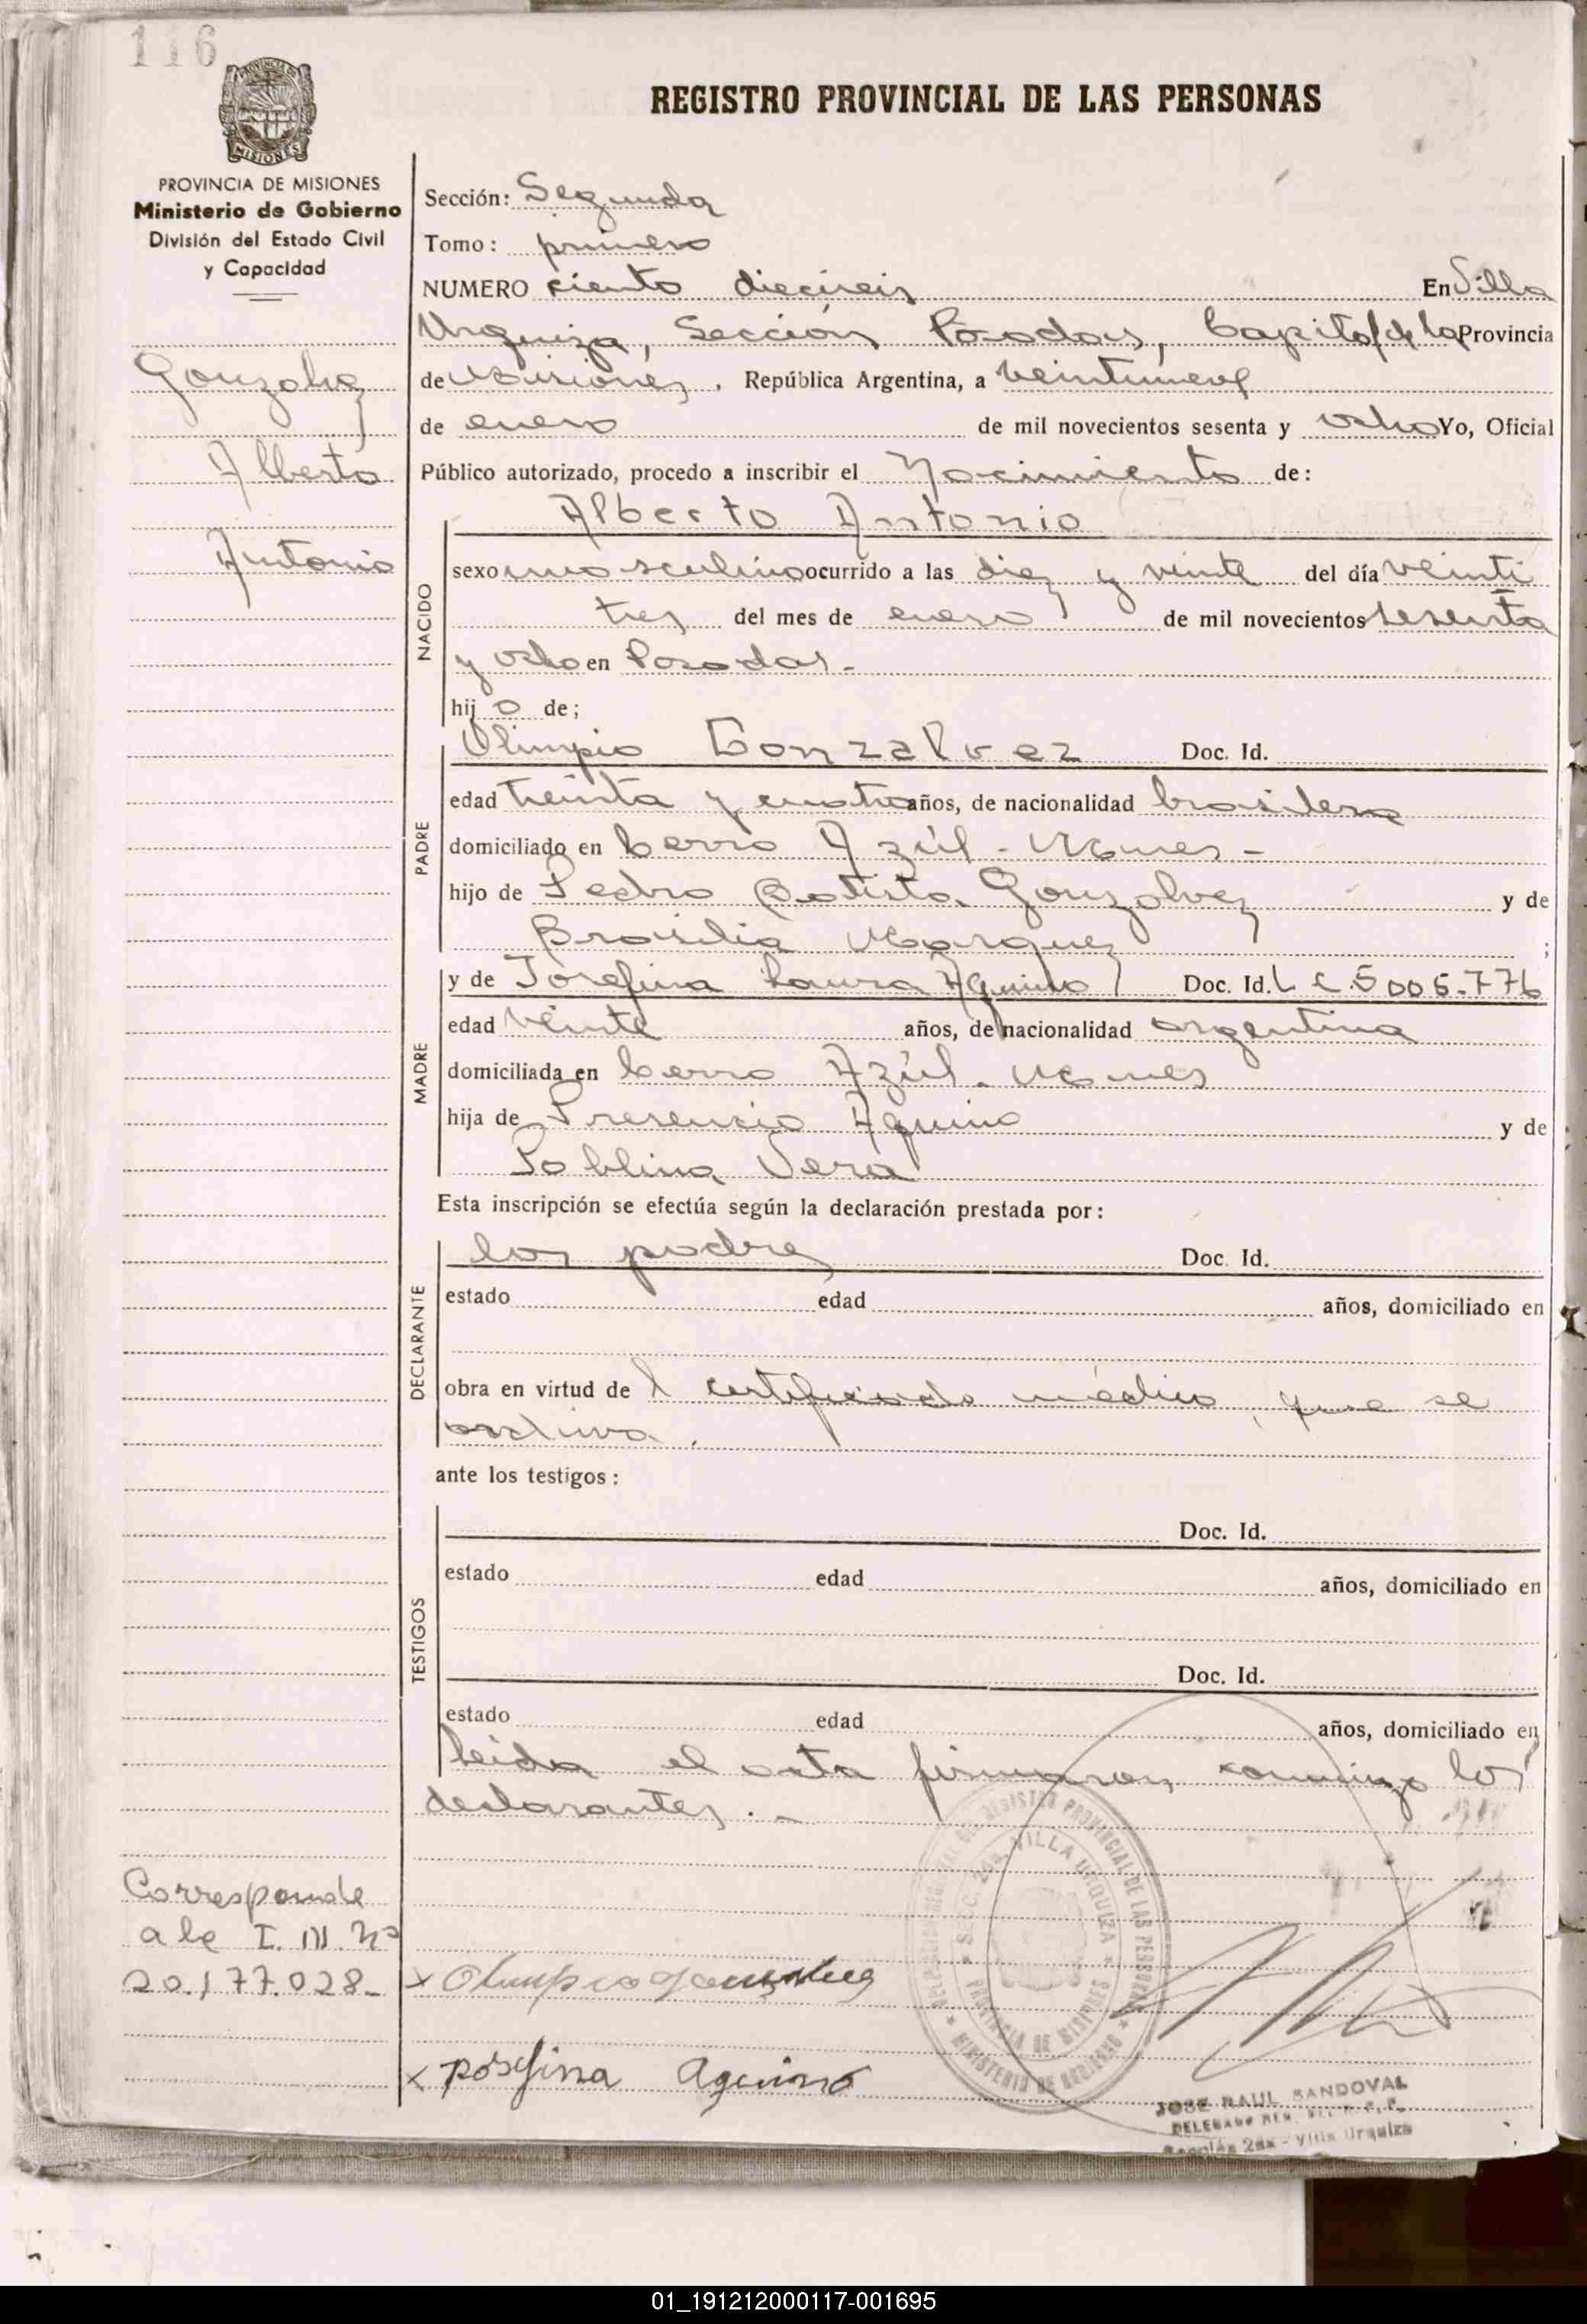 116
REGISTRO PROVINCIAL DE LAS PERSONAS
PROVINCIA DE MISIONES
MISIONES
PROVINCIA DE MISIONES
Ministerio de Gobierno
División del Estado Civil
y Capacidad
Gonzalvez
Alberto
Antonio
Sección: Segunda
Tomo: primero
NUMERO ciento dieciseis En Villa
Urquiza, Sección Posadas, Capital de la Provincia
de Misiones, República Argentina, a veintinueve
de enero de mil novecientos sesenta y ocho Yo, Oficial
Público autorizado, procedo a inscribir el Nacimiento de:
NACIDO
Alberto Antonio
sexo masculino ocurrido a las diez y veinte del día veinti
tres del mes de enero de mil novecientos sesenta
y ocho en Posadas.-
hij o de;
PADRE
Olimpio Gonzalvez Doc. Id.
edad treinta y cuatro años, de nacionalidad brasilera
domiciliado en Cerro Azúl - Mnes -
hijo de Pedro Batista Gonzalvez y de
Brasilia Marquez ;
MADRE
y de Josefina Laura Aquino Doc. Id. L C. 5005.776
edad veinte años, de nacionalidad argentina
domiciliada en Cerro Azúl. Mnes
hija de Presencio Aquino y de
Pablina Vera
Esta inscripción se efectúa según la declaración prestada por:
DECLARANTE
los padres Doc. Id.
estado edad años, domiciliado en
obra en virtud de l certificado médico, que se
archiva.
ante los testigos:
TESTIGOS
Doc. Id.
estado edad años, domiciliado en
Doc. Id.
estado edad años, domiciliado en
Leida el acta firmaron conmigo los
declarantes.-
Corresponde
a le I. M. Nº
20.177.028-
x Olimpio Gonzalvez
x Josefina Aquino
REGISTRO PROVINCIAL DE LAS PERSONAS
MINISTERIO DE GOBIERNO
SECC. 2da. VILLA URQUIZA
PROVINCIA DE MISIONES
JOSE RAUL SANDOVAL
DELEGADO
Sección 2da - Villa Urquiza
01_191212000117-001695